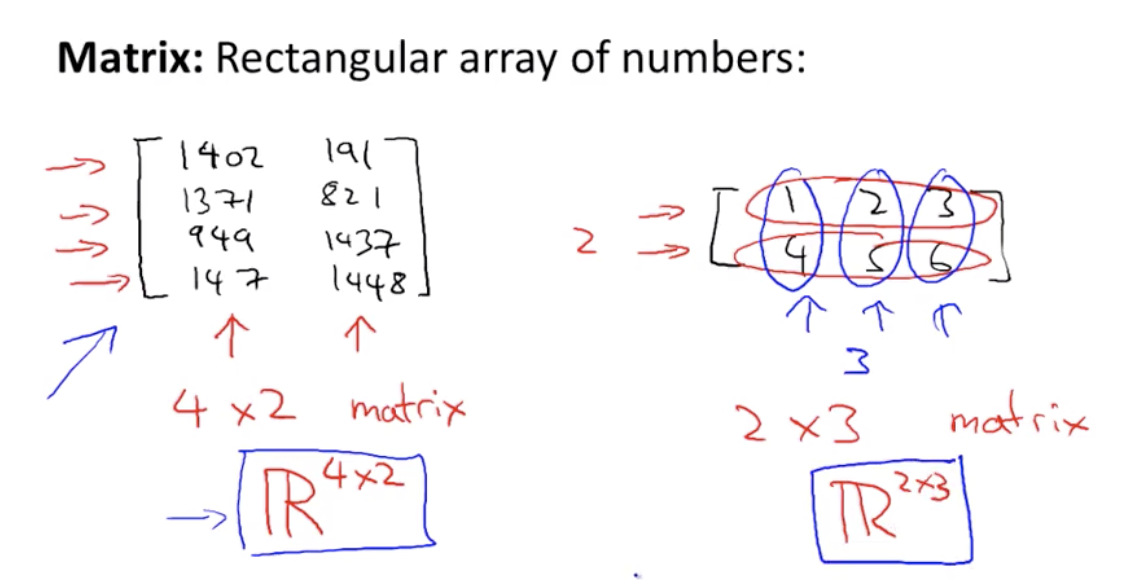 Matrix: Rectangular array of numbers:
1402 191
1371 821
949 1437
147 1448
4 x 2 matrix
ℝ^4x2
1 2 3
2
4 5 6
3
2 x 3 matrix
ℝ^2x3